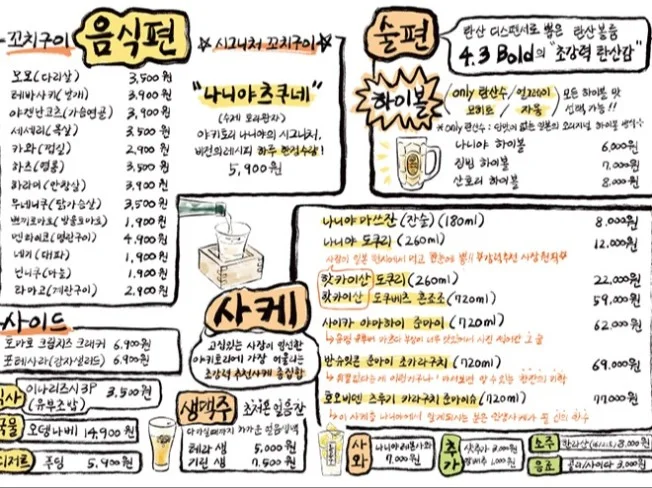 꼬치구이
음식편
모모(다리살) 3,500원
테바사키(날개) 3,900원
야겐난코츠(가슴연골) 3,900원
세세리(목살) 3,500원
카와(껍질) 2,900원
하츠(염통) 3,500원
하라미(안창살) 3,900원
무네니쿠(닭가슴살) 3,500원
쁘띠토마토(방울토마토) 1,900원
멘타이코(명란구이) 4,900원
네기(대파) 1,900원
닌니쿠(마늘) 1,900원
타마고(계란구이) 2,900원
시그니처 꼬치구이
"나니야츠쿠네"
(수제 모듬완자)
야키토리 나니야의 시그니처,
비전의레시피 하루 한정수량!
5,900원
술편
탄산 디스펜서로 뽑은 탄산볼륨
4.3 Bold의 "초강력 탄산감"
하이볼
only 탄산수/얼그레이/
모히또/자몽
모든 하이볼 맛
선택 가능!!
※only탄산수: 단맛이 없는 일본의 오리지널 하이볼 방식
나니야 하이볼 6,000원
짐빔 하이볼 7,000원
산토리 하이볼 8,000원
나니야 마쓰잔(잔술)(180ml) 8,000원
나니야 도쿠리(260ml) 12,000원
핫카이산 도쿠리(260ml) 22,000원
핫카이산 도쿠베츠 혼조조(720ml) 59,000원
사이카 야마하이 준마이(720ml) 62,000원
반슈잇콘 준마이 초카라구치(720ml) 69,000원
호오비덴 츠루기 카라구치 준마이슈(720ml) 77,000원
사케
고심있는 사장이 엄선한
야키토리에 가장 어울리는
초강력 추천사케 총집합
사이드
토마토 크림치즈 크래커 6,900원
포테사라(감자샐러드) 6,900원
식사
이나리즈시3P
(유부초밥)
3,500원
국물
오뎅나베 14,900원
디저트
푸딩 5,900원
생맥주
초저온 얼음잔
테라 생 5,000원
기린 생 7,500원
사와
나니야레몬사와
7,000원
추가
소주
한라산 8,000원
음료
콜라/사이다 3,000원